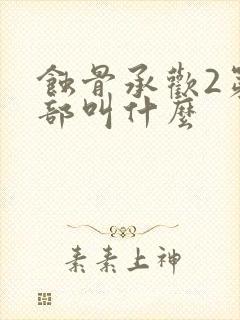 蝕骨承歡2第
部叫什麼
素素上神